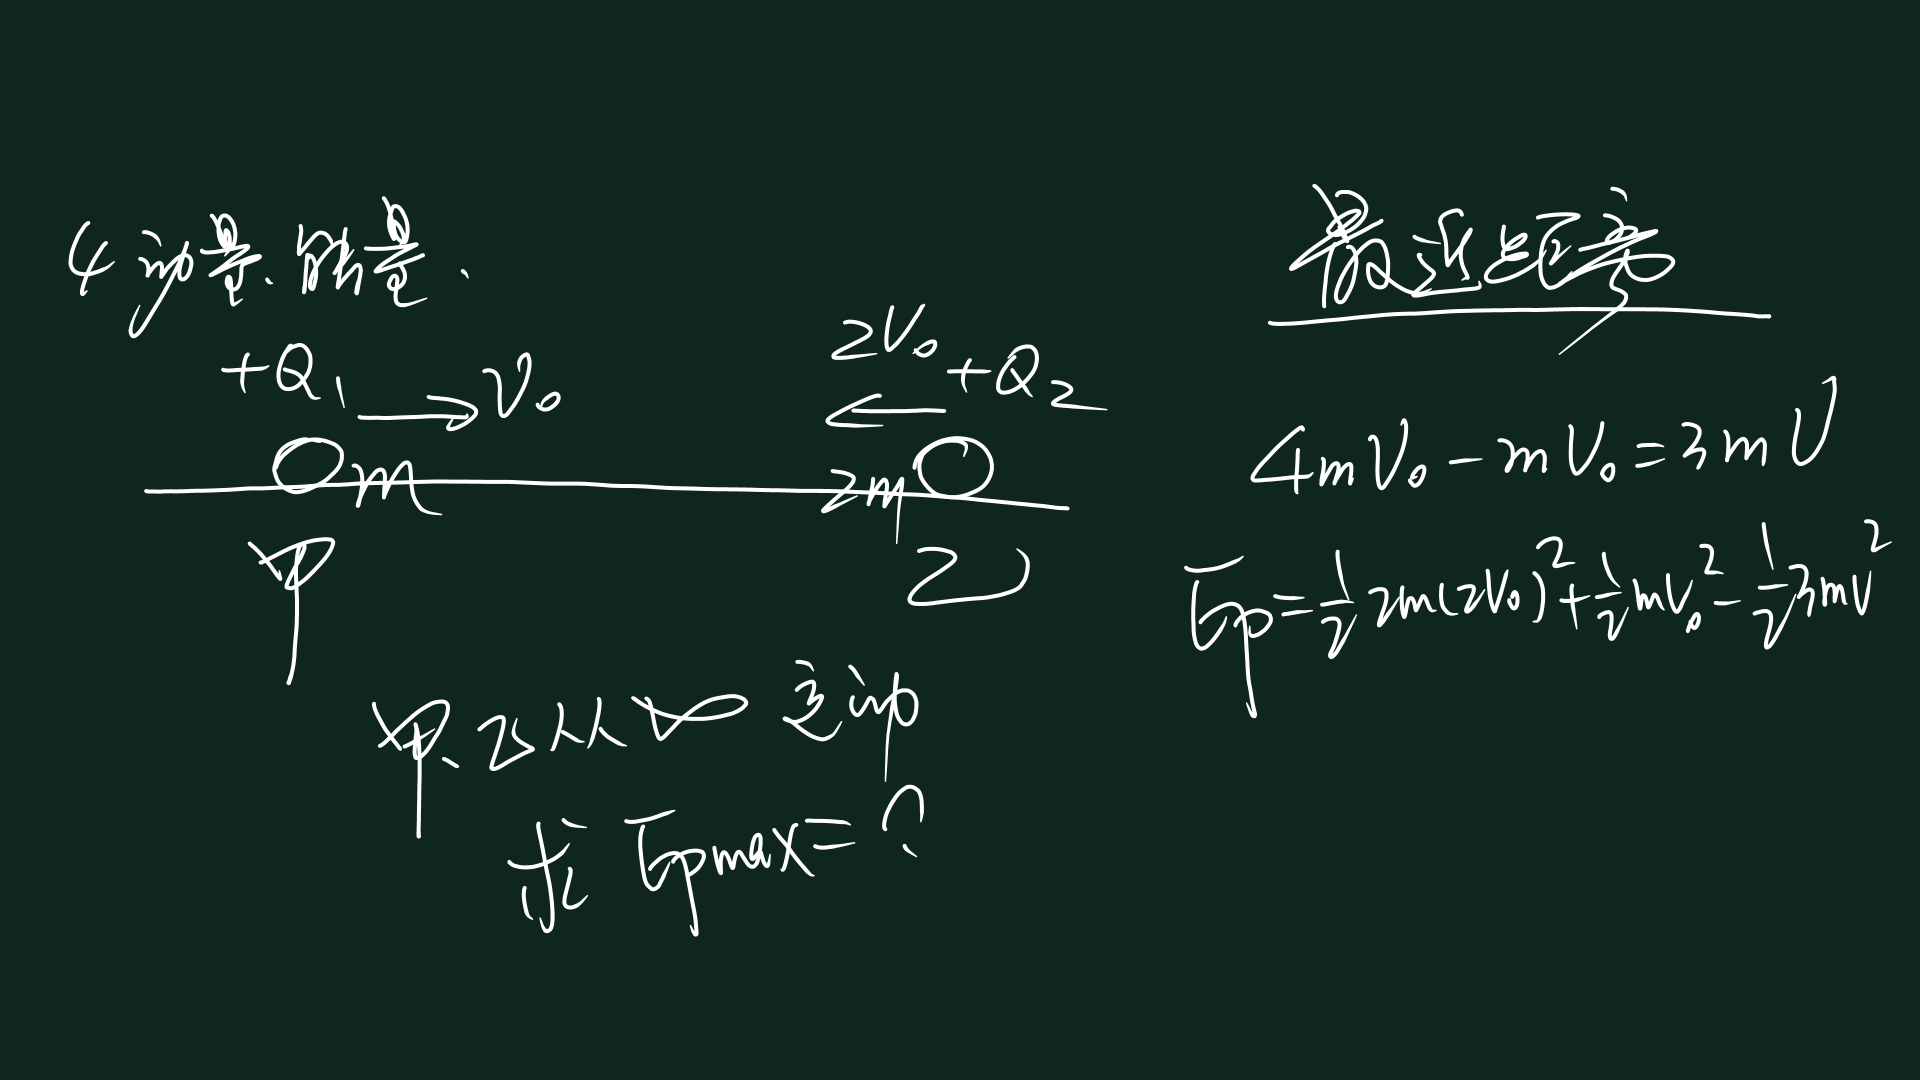 4 动量、能量.
+Q₁ → V₀
2V₀ ← +Q₂
m
2m
甲
乙
甲、乙从 ∞ 运动
求 Epmax = ?
最近距离
4mV₀ - mV₀ = 3mV
Ep = ½ 2m(2V₀)² + ½ mV₀² - ½ 3mV²